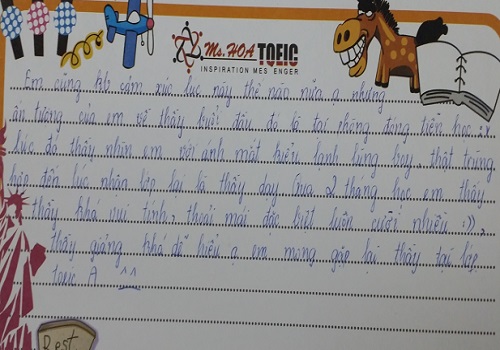 Ms. HOA TOEIC
INSPIRATION MESSENGER
Em cũng k b cảm xúc lúc này thế nào nữa ạ nhưng
ấn tượng của em về thầy buổi đầu đó là tại chống đóng tiền học :x
lúc đó thầy nhìn em với ánh mắt kiểu lạnh lùng hay... thất vọng.
đến lúc nhận lớp lại là thầy dạy Qua 2 tháng học em thấy
thầy khá vui tính, thoải mái đặc biệt luôn cười nhiều :)),
thầy giảng khá dễ hiểu ạ em mong gặp lại thầy tại lớp
toeic A ^^
Best